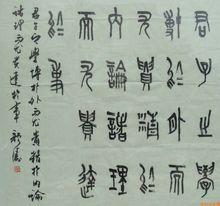 君子之學
博於外而
尤貴精於
內論諸理
而尤貴達
於事
君子之學博於外而尤貴精於內論
諸理而尤貴達於事